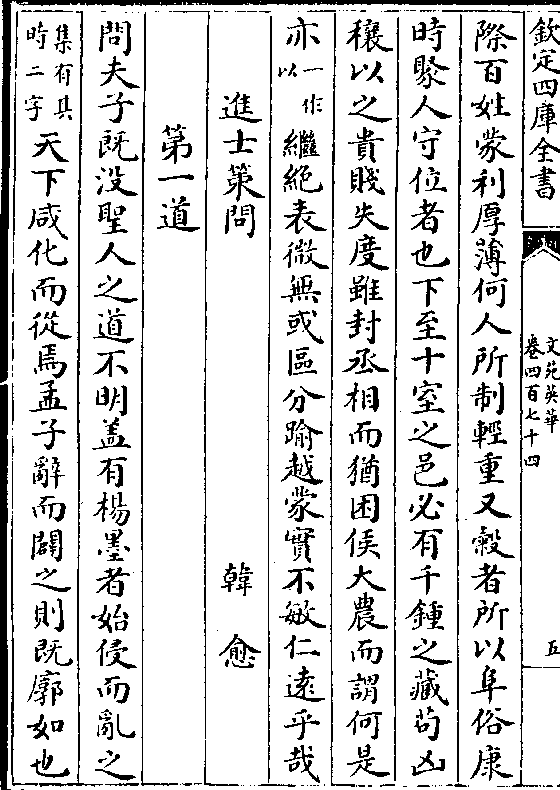 欽定四庫全書
文苑英華
卷四百七十四
五
際百姓蒙利厚薄何人所制輕重又穀者所以阜俗康
時聚人守位者也下至十室之邑必有千鍾之藏茍凶
穰以之貴賤失度雖封丞相而猶困侯大農而謂何是
亦一作以繼絕表微無或區分踰越蒙實不敏仁遠乎哉
進士策問 韓愈
第一道
問夫子既没聖人之道不明盖有楊墨者始侵而亂之
集有其時二字天下咸化而從焉孟子辭而闢之則既廓如也